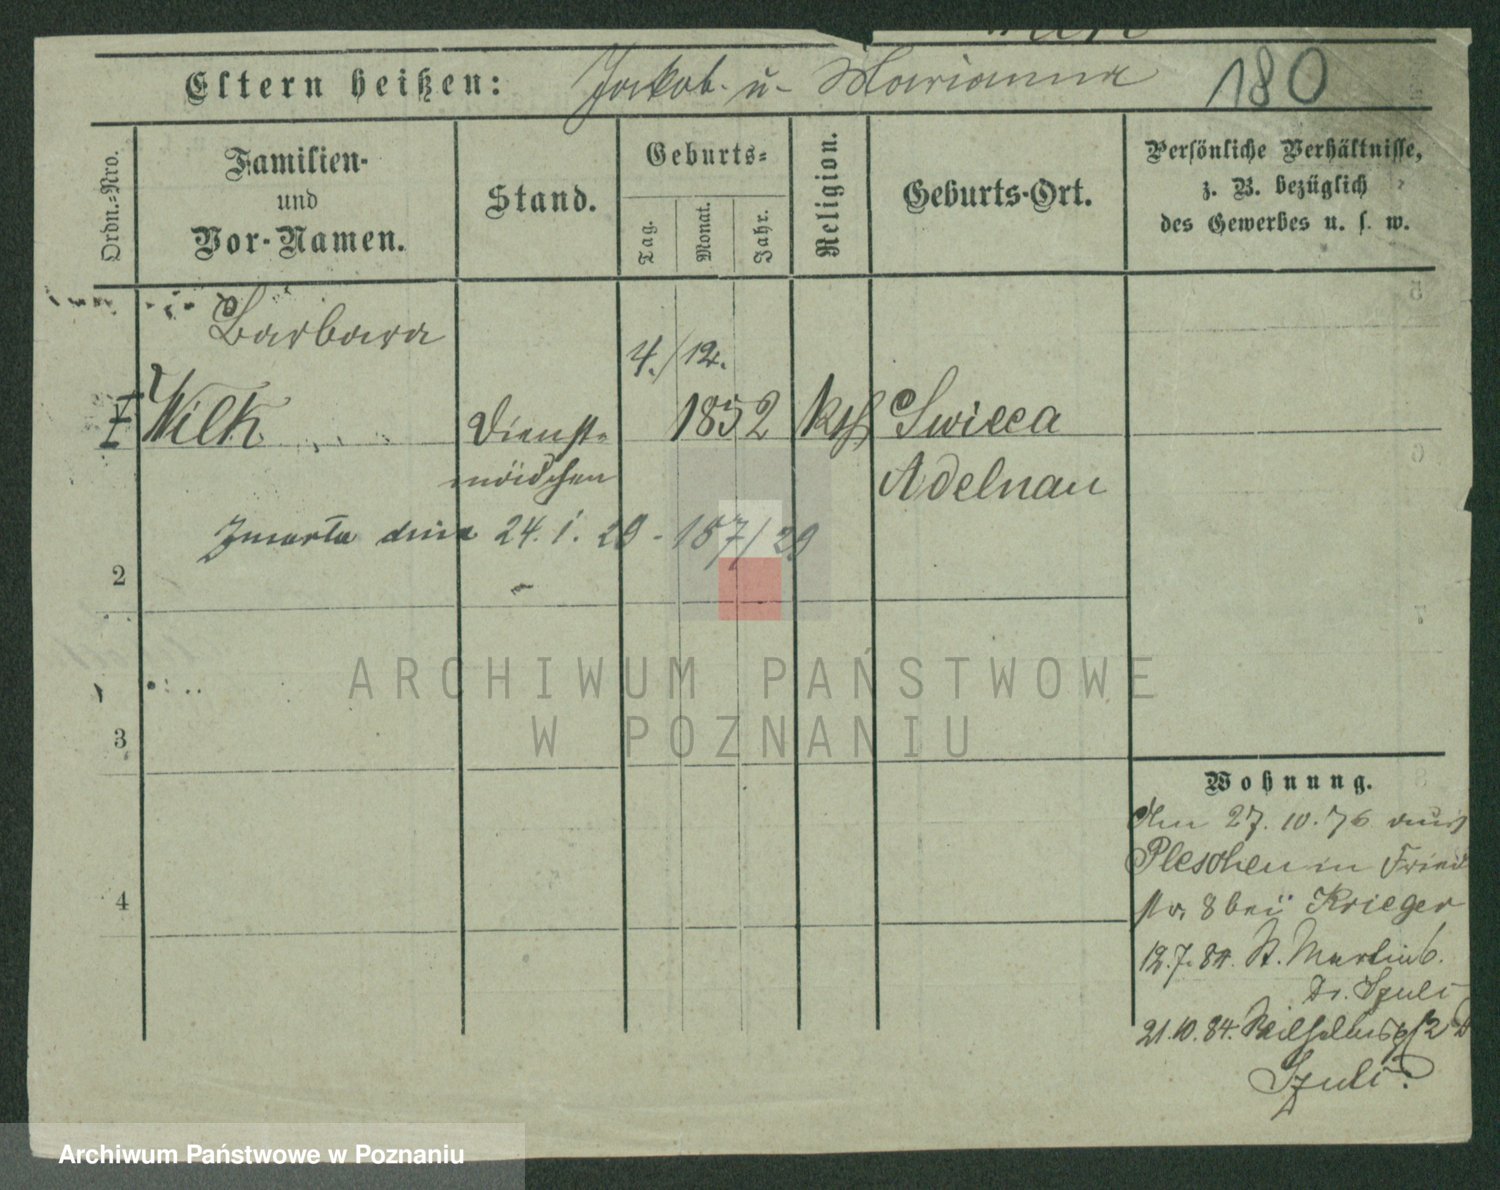 Eltern heißen: Jakob u. Marianna 180
Ordn.-Nro.
Familien-
und
Vor-Namen.
Stand.
Geburts-
Tag.
Monat.
Jahr.
Religion.
Geburts-Ort.
Persönliche Verhältnisse,
z. B. bezüglich
des Gewerbes u. s. w.
Barbara
4./12.
Wilk Dienst- 1852 kth Swieca
mädchen Adelnau
Zmarła dnia 24. 1. 29 - 157/29
2
3
4
Wohnung.
27. 10. 76
Pleschen in
8 bei Krieger
12.7.84. St. Martin 6.
Dr. Szulc
21.10.84. Wilhelmspl 2
Szulc
ARCHIWUM PAŃSTWOWE
W POZNANIU
Archiwum Państwowe w Poznaniu